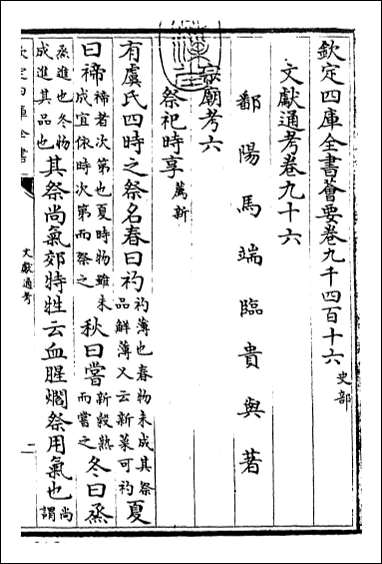 欽定四庫全書薈要卷九千四百十六 史部
文獻通考卷九十六
鄱陽馬端臨貴與著
宗廟考六
祭祀時享 薦新
有虞氏四時之祭名春曰礿礿薄也春物未成其祭品鮮薄又云新菜可礿夏
曰禘禘者次第也夏時物雖未成宜依時次第而祭之秋曰嘗新穀熟而嘗之冬曰烝
烝進也冬物成進其品也其祭尚氣郊特牲云血腥爓祭用氣也尚謂
欽定四庫全書
文獻通考